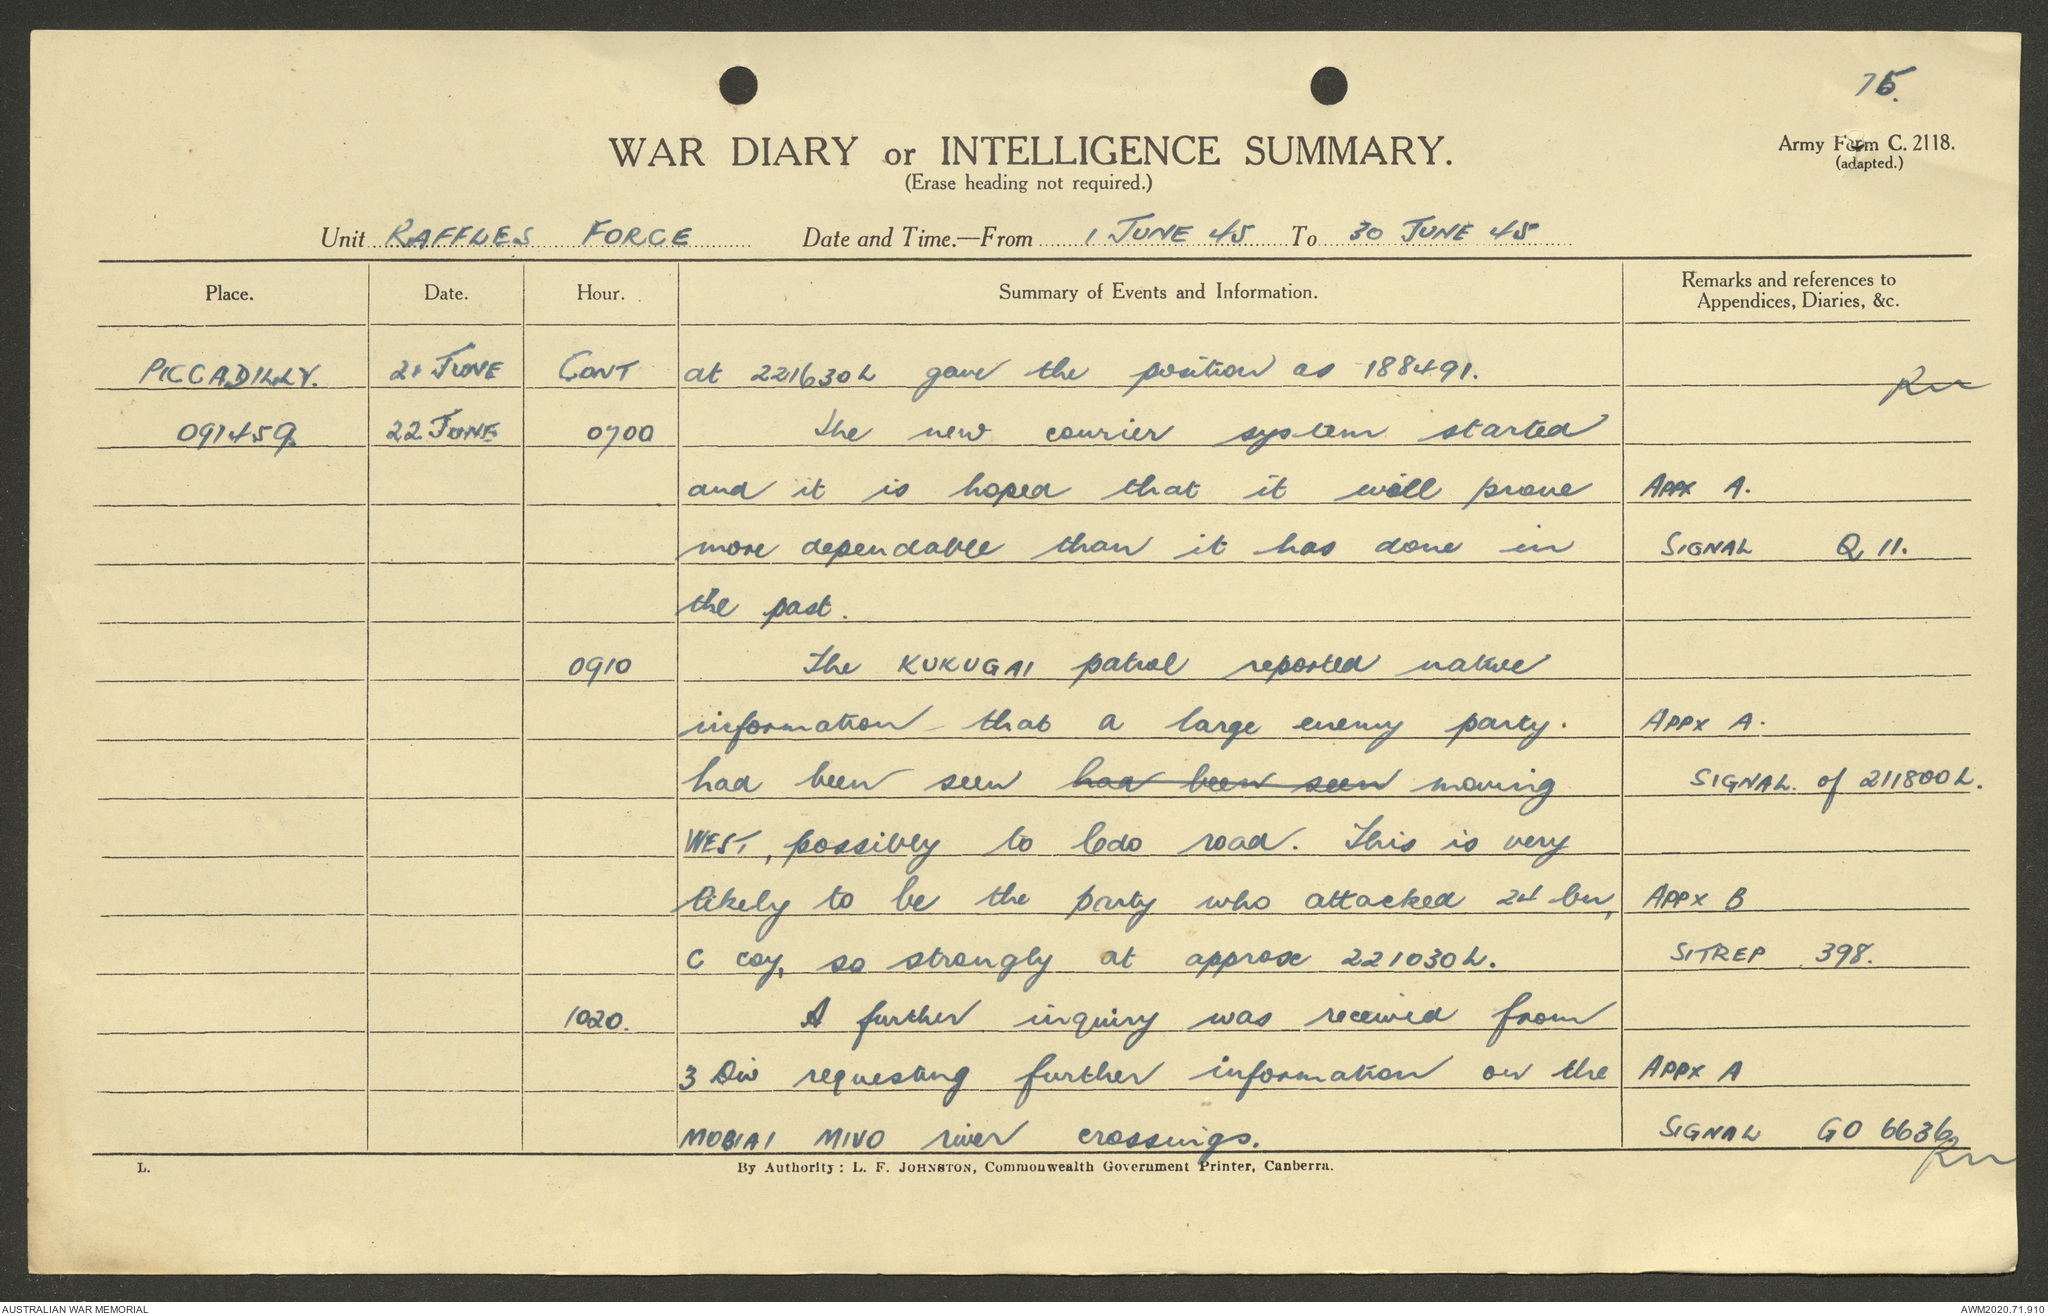 75.
WAR DIARY or INTELLIGENCE SUMMARY.
Army Form C. 2118.
(adapted.)
(Erase heading not required.)
Unit RAFFLES FORCE Date and Time.—From 1 JUNE 45 To 30 JUNE 45
Place. Date. Hour. Summary of Events and Information. Remarks and references to Appendices, Diaries, &c.
PICCADILLY. 21 JUNE CONT at 221630L gave the position as 188491.
091459 22 JUNE 0700 The new courier system started
and it is hoped that it will prove APPX A.
more dependable than it has done in SIGNAL Q 11.
the past.
0910 The KUKUGAI patrol reported native
information that a large enemy party. APPX A.
had been seen had been seen moving SIGNAL. of 211800L.
WEST, possibly to Codo road. This is very
likely to be the party who attacked 24 bn, APPX B
C coy, so strongly at approx 221030L. SITREP 398.
1020. A further inquiry was received from
3 Div requesting further information on the APPX A
MOBIAI MIVO river crossings. SIGNAL GO 6636
L. By Authority: L. F. JOHNSTON, Commonwealth Government Printer, Canberra.
AUSTRALIAN WAR MEMORIAL AWM2020.71.910